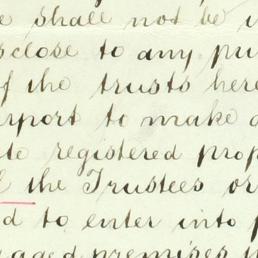 e shall not be i
sclose to any pu
f the trusts here
urport to make a
te registered prop
the Trustees or
d to enter into p
gaged premises